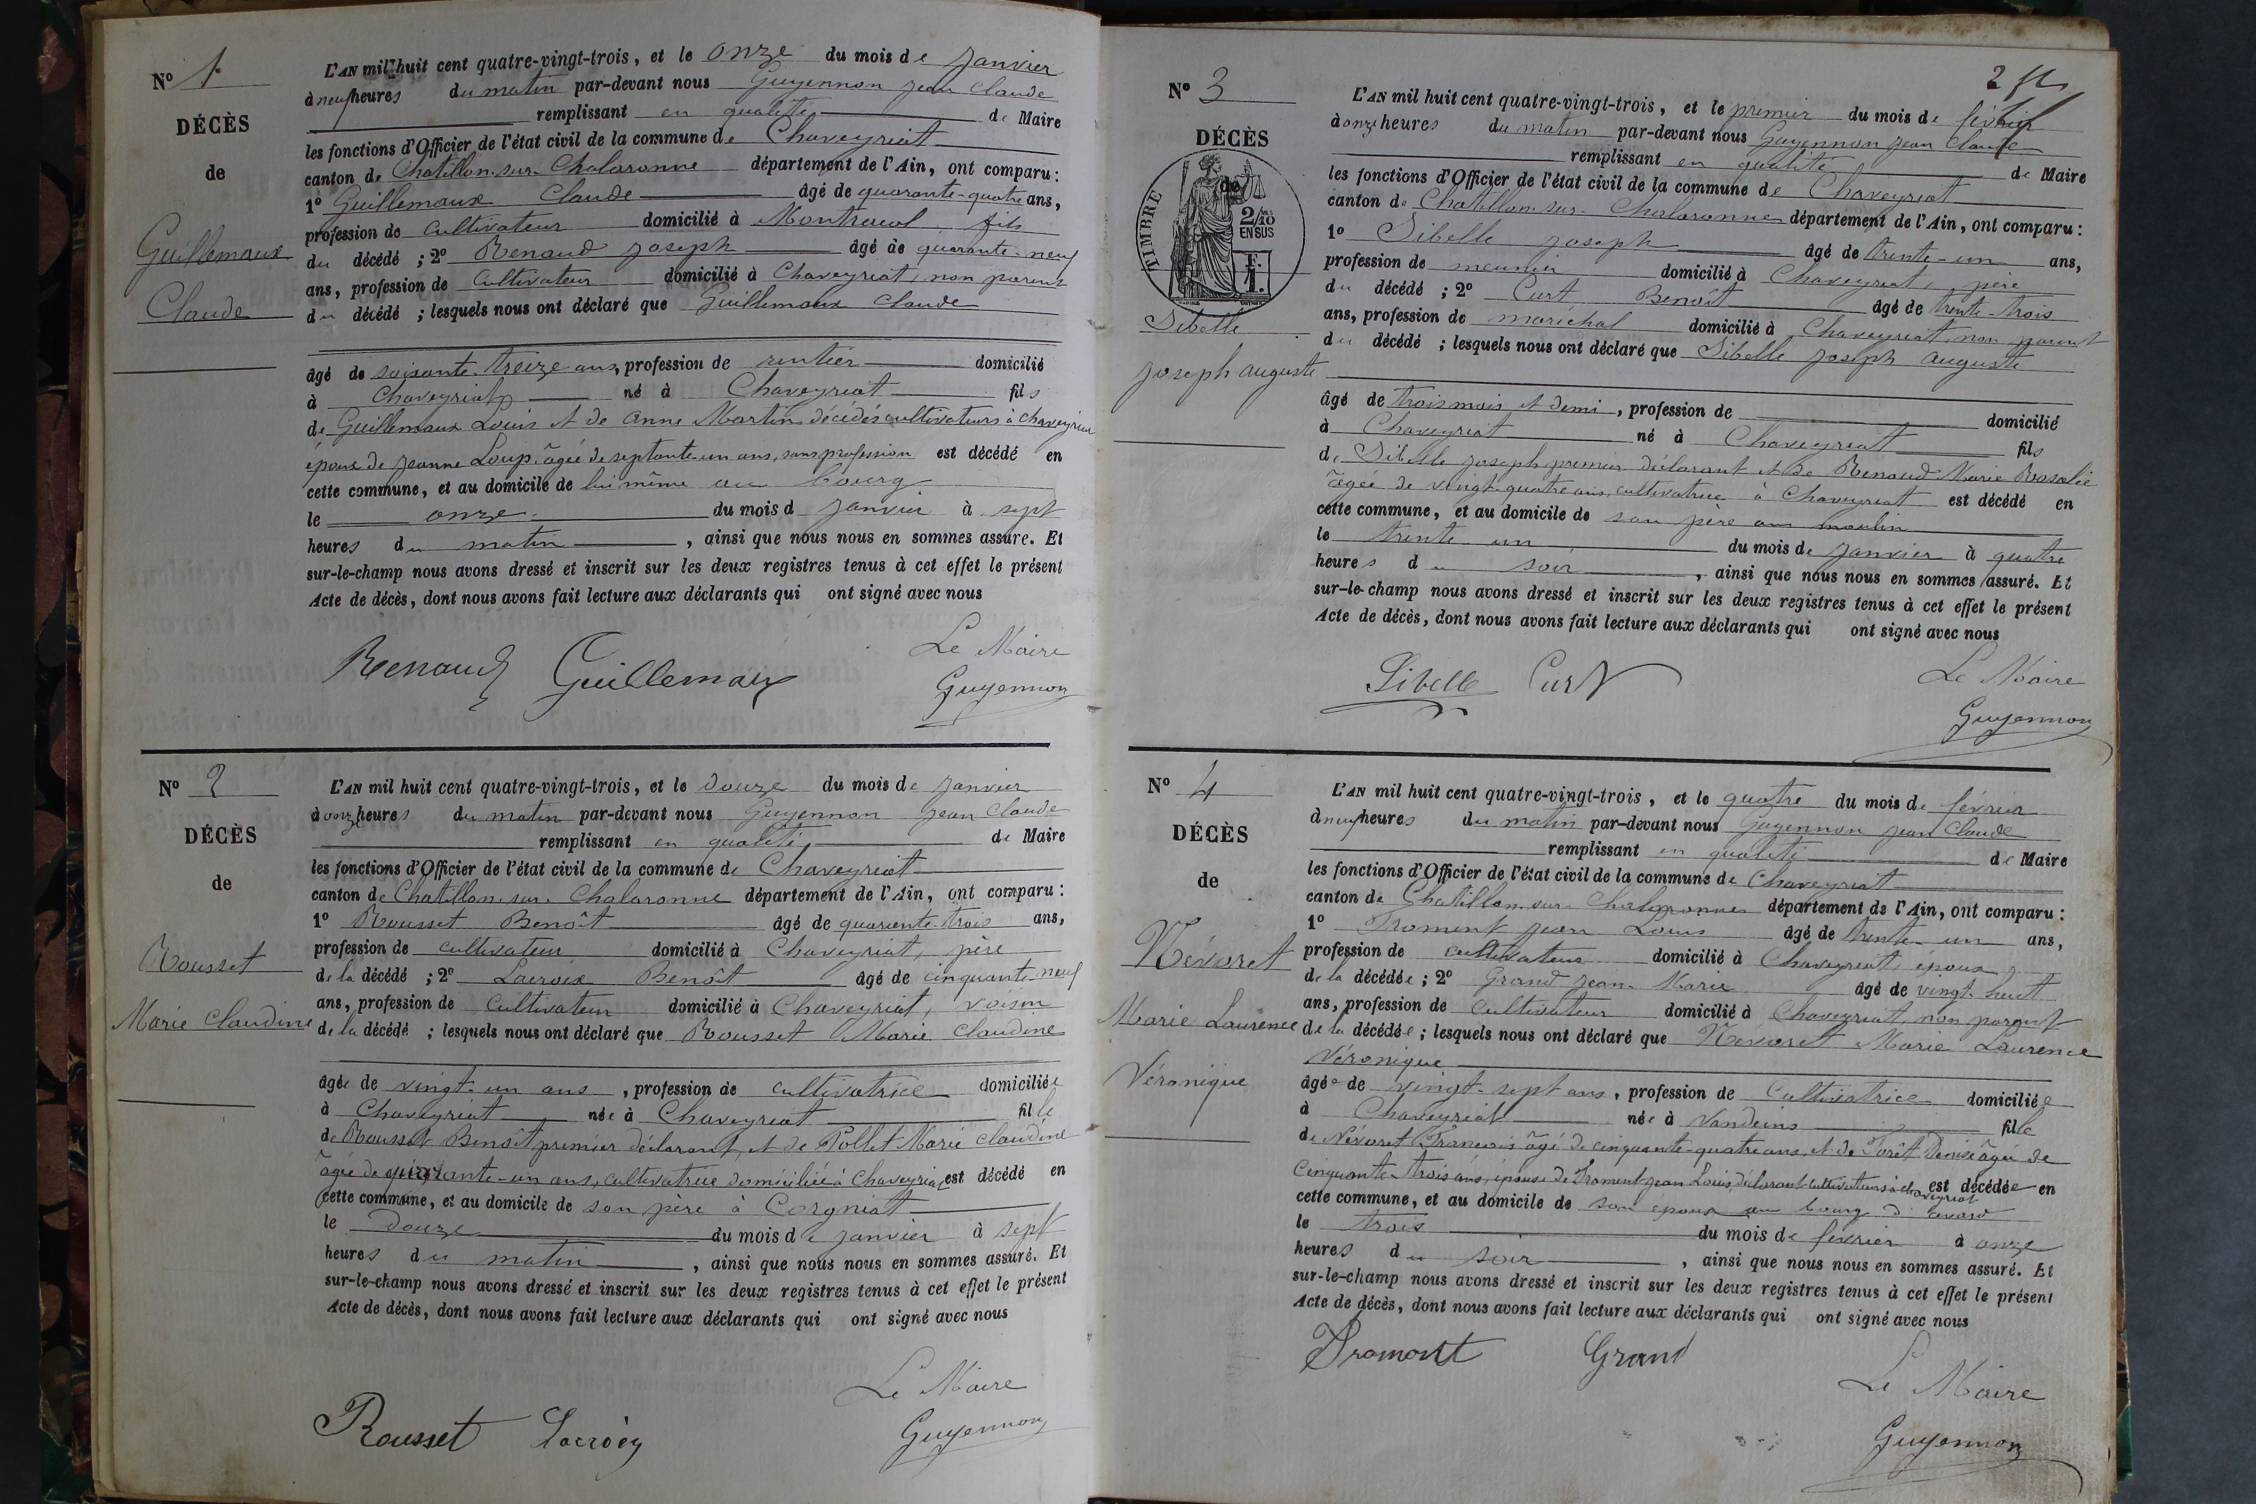 Nº 1
DÉCÈS
de
Guillemaux
Claude
L'AN mil huit cent quatre-vingt-trois, et le onze du mois de janvier
à neuf heures du matin par-devant nous Guyennon jean Claude
remplissant en qualité de Maire
les fonctions d'Officier de l'état civil de la commune de Chaveyriat
canton de Chatillon-sur-Chalaronne département de l'Ain, ont comparu :
1º Guillemaux Claude âgé de quarante-quatre ans,
profession de cultivateur domicilié à Montracol fils
du décédé ; 2º Renaud joseph âgé de quarante-neuf
ans, profession de cultivateur domicilié à Chaveyriat, non parent
du décédé ; lesquels nous ont déclaré que Guillemaux Claude
âgé de soixante-treize ans, profession de rentier domicilié
à Chaveyriat né à Chaveyriat fils
de Guillemaux Louis et de Anne Martin décédés cultivateurs à Chaveyriat
époux de Jeanne Loup, âgée de septante-un ans, sans profession est décédé en
cette commune, et au domicile de lui même au bourg
le onze du mois d janvier à sept
heures du matin, ainsi que nous nous en sommes assuré. Et
sur-le-champ nous avons dressé et inscrit sur les deux registres tenus à cet effet le présent
Acte de décès, dont nous avons fait lecture aux déclarants qui ont signé avec nous
Le Maire
Renaud Guillemaux Guyennon
Nº 2
DÉCÈS
de
Rousset
Marie Claudine
L'AN mil huit cent quatre-vingt-trois, et le douze du mois de janvier
à onze heures du matin par-devant nous Guyennon jean Claude
remplissant en qualité de Maire
les fonctions d'Officier de l'état civil de la commune de Chaveyriat
canton de Chatillon-sur-Chalaronne département de l'Ain, ont comparu :
1º Rousset Benoît âgé de quarante-trois ans,
profession de cultivateur domicilié à Chaveyriat, père
de la décédé ; 2º Lacroix Benoît âgé de cinquante-neuf
ans, profession de cultivateur domicilié à Chaveyriat, voisin
de la décédé ; lesquels nous ont déclaré que Rousset Marie Claudine
âgée de vingt-un ans, profession de cultivatrice domiciliée
à Chaveyriat née à Chaveyriat fille
de Rousset Benoît premier déclarant, et de Pollet Marie Claudine
âgée de quarante-un ans, cultivatrice domiciliée à Chaveyriat est décédé en
cette commune, et au domicile de son père à Corgniat
le douze du mois de janvier à sept
heures du matin, ainsi que nous nous en sommes assuré. Et
sur-le-champ nous avons dressé et inscrit sur les deux registres tenus à cet effet le présent
Acte de décès, dont nous avons fait lecture aux déclarants qui ont signé avec nous
Le Maire
Rousset Lacroix Guyennon
Nº 3
DÉCÈS
de
TIMBRE
2/10
EN SUS
F.
1.
Sibelle
joseph auguste
L'AN mil huit cent quatre-vingt-trois, et le premier du mois de février
à onze heures du matin par-devant nous Guyennon jean Claude
remplissant en qualité de Maire
les fonctions d'Officier de l'état civil de la commune de Chaveyriat
canton de Chatillon-sur-Chalaronne département de l'Ain, ont comparu :
1º Sibelle joseph âgé de trente-un ans,
profession de meunier domicilié à Chaveyriat, père
du décédé ; 2º Curt Benoît âgé de trente-trois
ans, profession de maréchal domicilié à Chaveyriat, non parent
du décédé ; lesquels nous ont déclaré que Sibelle joseph auguste
âgé de trois mois et demi, profession de domicilié
à Chaveyriat né à Chaveyriat fils
de Sibelle joseph premier déclarant et de Renaud Marie Rosalie
âgée de vingt-quatre ans, cultivatrice à Chaveyriat est décédé en
cette commune, et au domicile de son père au moulin
le trente un du mois de janvier à quatre
heures du soir, ainsi que nous nous en sommes assuré. Et
sur-le-champ nous avons dressé et inscrit sur les deux registres tenus à cet effet le présent
Acte de décès, dont nous avons fait lecture aux déclarants qui ont signé avec nous
Le Maire
Sibelle Curt Guyennon
Nº 4
DÉCÈS
de
Névoret
Marie Laurence
Véronique
L'AN mil huit cent quatre-vingt-trois, et le quatre du mois de février
à neuf heures du matin par-devant nous Guyennon jean Claude
remplissant en qualité de Maire
les fonctions d'Officier de l'état civil de la commune de Chaveyriat
canton de Chatillon-sur-Chalaronne département de l'Ain, ont comparu :
1º Froment jean Louis âgé de trente-un ans,
profession de cultivateur domicilié à Chaveyriat, époux
de la décédée ; 2º Grand jean-Marie âgé de vingt-huit
ans, profession de cultivateur domicilié à Chaveyriat, non parent
de la décédée ; lesquels nous ont déclaré que Névoret Marie Laurence
Véronique
âgée de vingt-sept ans, profession de cultivatrice domiciliée
à Chaveyriat née à Vandeins fille
de Névoret François âgé de cinquante-quatre ans, et de Forêt Denise âgée de
cinquante-trois ans, épouse de Froment jean Louis, déclarant cultivateurs à chaveyriat est décédée en
cette commune, et au domicile de son époux au bourg
le trois du mois de février à onze
heures du soir, ainsi que nous nous en sommes assuré. Et
sur-le-champ nous avons dressé et inscrit sur les deux registres tenus à cet effet le présent
Acte de décès, dont nous avons fait lecture aux déclarants qui ont signé avec nous
Froment Grand
Le Maire
Guyennon